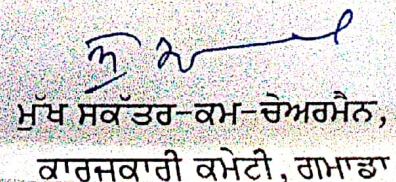 ਮੁੱਖ ਸਕੱਤਰ-ਕਮ-ਚੇਅਰਮੈਨ,
ਕਾਰਜਕਾਰੀ ਕਮੇਟੀ, ਗਮਾਡਾ